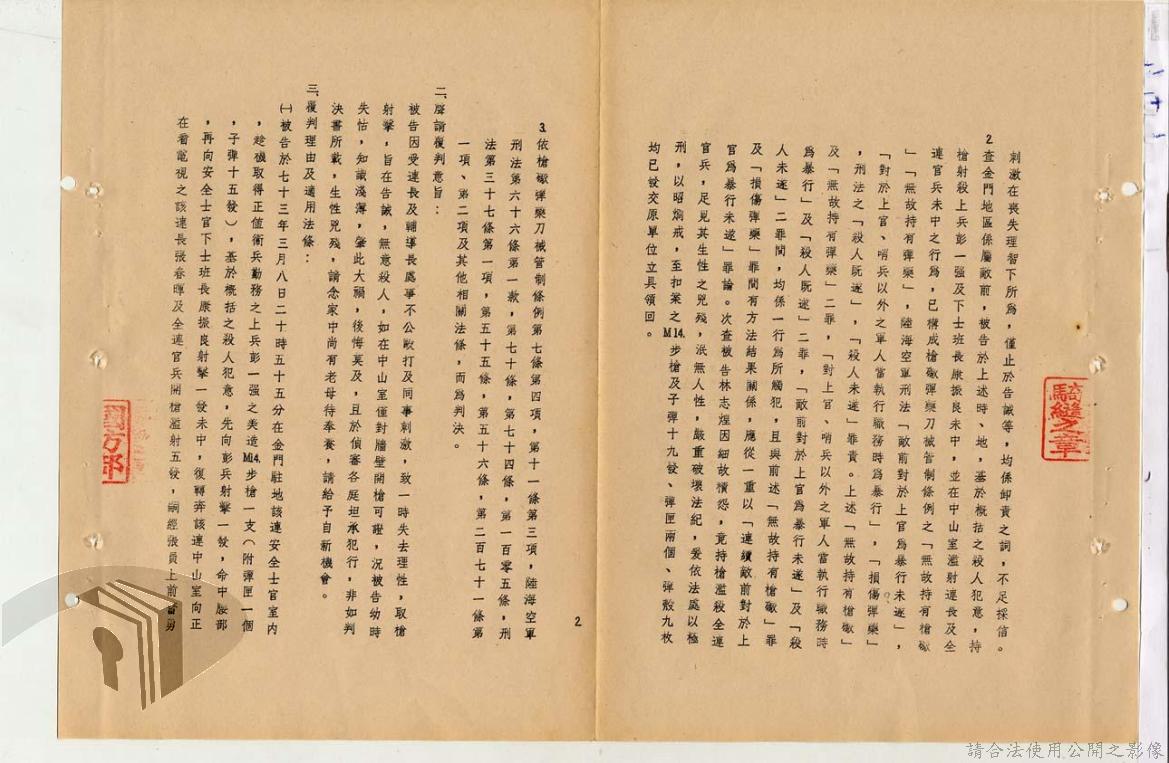 刺激在喪失理智下所為，僅止於告誡等，均係卸責之詞，不足採信。
2.查金門地區係屬敵前，被告於上述時、地，基於概括之殺人犯意，持
槍射殺上兵彭一强及下士班長康振良未中，並在中山室濫射連長及全
連官兵未中之行為，已構成槍礮彈藥刀械管制條例之「無故持有槍礮
」「無故持有彈藥」，陸海空軍刑法「敵前對於上官為暴行未遂」，
「對於上官、哨兵以外之軍人當執行職務時為暴行」，「損傷彈藥」
，刑法之「殺人既遂」，「殺人未遂」罪責。上述「無故持有槍礮」
及「無故持有彈藥」二罪，「對上官、哨兵以外之軍人當執行職務時
為暴行」及「殺人既遂」二罪，「敵前對於上官為暴行未遂」及「殺
人未遂」二罪間，均係一行為所觸犯，且與前述「無故持有槍礮」罪
及「損傷彈藥」罪間有方法結果關係，應從一重以「連續敵前對於上
官為暴行未遂」罪論。次查被告林志煌因細故積怨，竟持槍濫殺全連
官兵，足見其生性之兇殘，泯無人性，嚴重破壞法紀，爰依法處以極
刑，以昭烱戒，至扣案之M14.步槍及子彈十九發、彈匣兩個、彈殼九枚
均已設交原單位立具領回。
2
3.依槍礮彈藥刀械管制條例第七條第四項，第十一條第三項，陸海空軍
刑法第六十六條第一款，第七十條，第七十四條，第一百零五條，刑
法第三十七條第一項，第五十五條，第五十六條，第二百七十一條第
一項、第二項及其他相關法條，而為判決。
二、聲請覆判意旨：
被告因受連長及輔導長處事不公毆打及同事刺激，致一時失去理性，取槍
射擊，旨在告誡，無意殺人，如在中山室僅對牆壁開槍可證，況被告幼時
失怙，知識淺薄，肇此大禍，後悔莫及，且於偵審各庭坦承犯行，非如判
決書所載，生性兇殘，請念家中尚有老母待奉養，請給予自新機會。
三、覆判理由及適用法條：
㈠被告於七十三年三月八日二十時五十五分在金門駐地該連安全士官室內
，趁機取得正值衛兵勤務之上兵彭一强之美造M14.步槍一支（附彈匣一個
，子彈十五發），基於概括之殺人犯意，先向彭兵射擊一發，命中腰部
，再向安全士官下士班長康振良射擊一發未中，復轉奔該連中山室向正
在看電視之該連長張春暉及全連官兵開槍濫射五發，嗣經張員上前奮勇
騎縫之章
國防部
請合法使用公開之影像